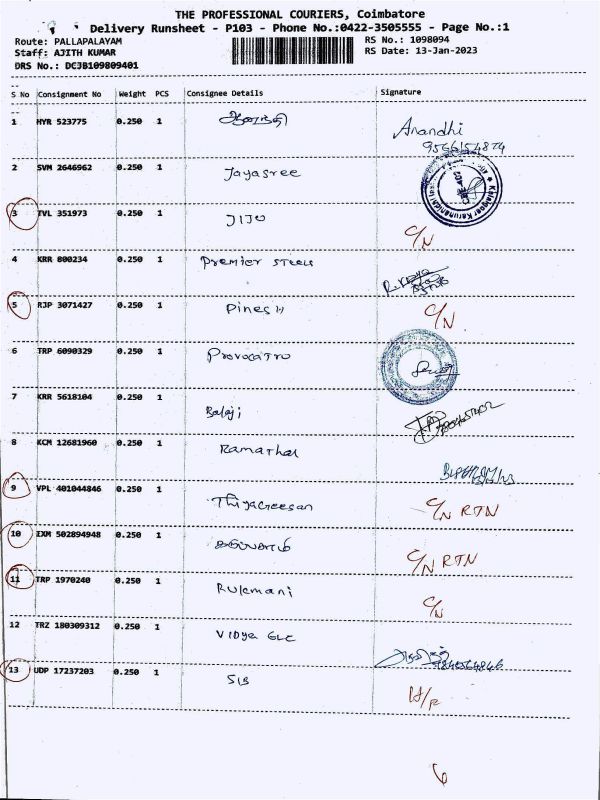 THE PROFESSIONAL COURIERS, Coimbatore
Delivery Runsheet - P103 - Phone No.:0422-3505555 - Page No.:1
Route: PALLAPALAYAM RS No.: 1098094
Staff: AJITH KUMAR RS Date: 13-Jan-2023
DRS No.: DCJB109809401
S No Consignment No Weight PCS Consignee Details Signature
1 MYR 523775 0.250 1 ஆனந்தி Anandhi
2 SVM 2646962 0.250 1 Jayasree
3 TVL 351973 0.250 1 JIJO C/N
4 KRR 800234 0.250 1 Premier Steels
5 RJP 3071427 0.250 1 Dinesh C/N
6 TRP 6090329 0.250 1 Provocatro
7 KRR 5618104 0.250 1 Balaji
8 KCM 12681960 0.250 1 Ramathal
9 VPL 401044846 0.250 1 Thiyageesan C/N RTN
10 IXM 502894948 0.250 1 C/N RTN
11 TRP 1970240 0.250 1 Rukmani C/N
12 TRZ 180309312 0.250 1 Vidya GLC
13 UDP 17237203 0.250 1 SIB
6